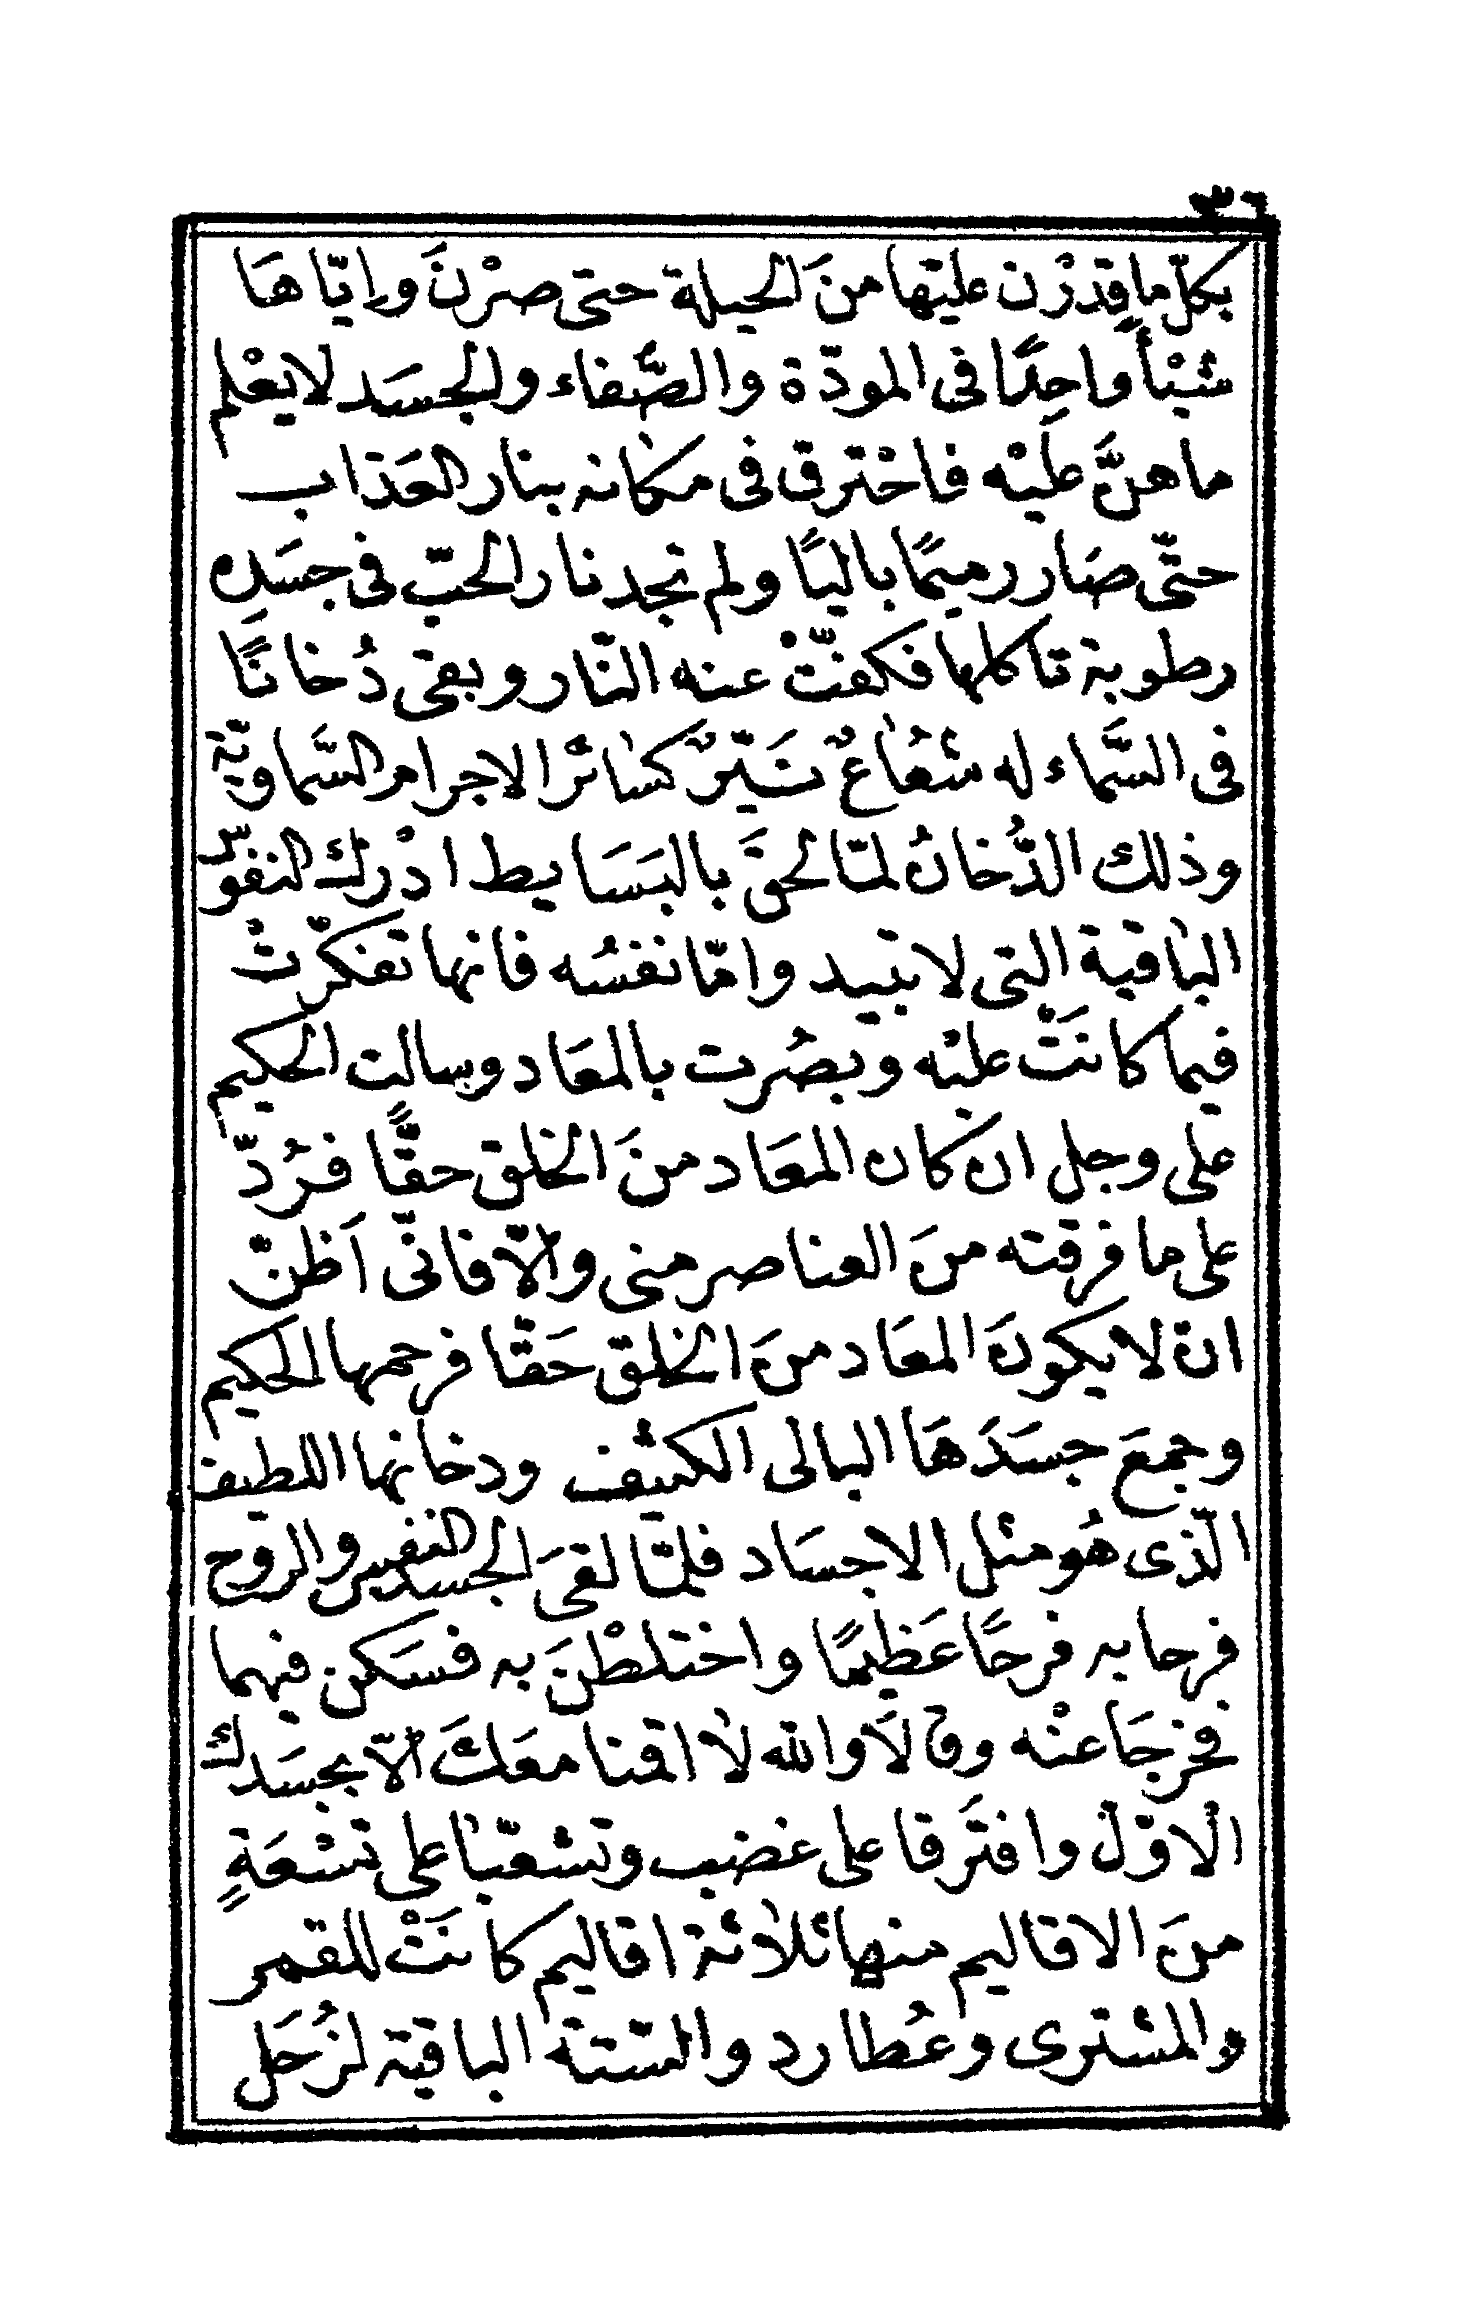 ٣٦
بكلّ ما قدرْن عليها منَ الحيلة حتى صرْنَ وإيّا هَا
شيْأً واحِدًا فى المودّة والصَّفاء والجسَد لا يعْلم
ما هنَّ عليْه فاحْترق فى مكانه بنار العَذاب
حتّى صَار رميمًا باليًا ولم تجد نار الحبّ فى جسَدِه
رطوبة تاكلها فكفّتْ عنه النّار وبقى دُخانًا
فى السَّماء له شُعَاعٌ نَيّرٌ كسَائر الاجرام السَّماويّة
وذلك الدُّخانُ لمّا لحقَ بالبَسَايط ادْرك النفوْس
الباقية التى لا تبيد وامّا نفسُه فانها تفكّرتْ
فيما كانَتْ عليْه وبصُرت بالمعَاد وسالت الحكيم
على وجل ان كان المعَاد منَ الخلق حقًّا فرُدّ
على ما فرقته منَ العناصر منى والّا فانّى اَظنّ
ان لا يكونَ المعَاد منَ الخلق حَقّا فرحمها الحكيم
وجمعَ جسَدَهَا البالى الكثيف ودخانها اللطيف
الّذى هُو مثل الاجسَاد فلمّا لقىَ الجسد النفس والروح
فرحا به فرحًا عَظيمًا واختلطْنَ به فسَكن فيهما
فخرجَا عنْه وقالَا والله لا اقمنا معَكَ الّا بجسَدك
الاوّل وافترَقا على غضب وتشعّبا على تسْعَةٍ
منَ الاقاليم منها ثلاثة اقاليم كانَتْ للقمر
والمشترى وعُطارد والستة الباقية لزُحَل